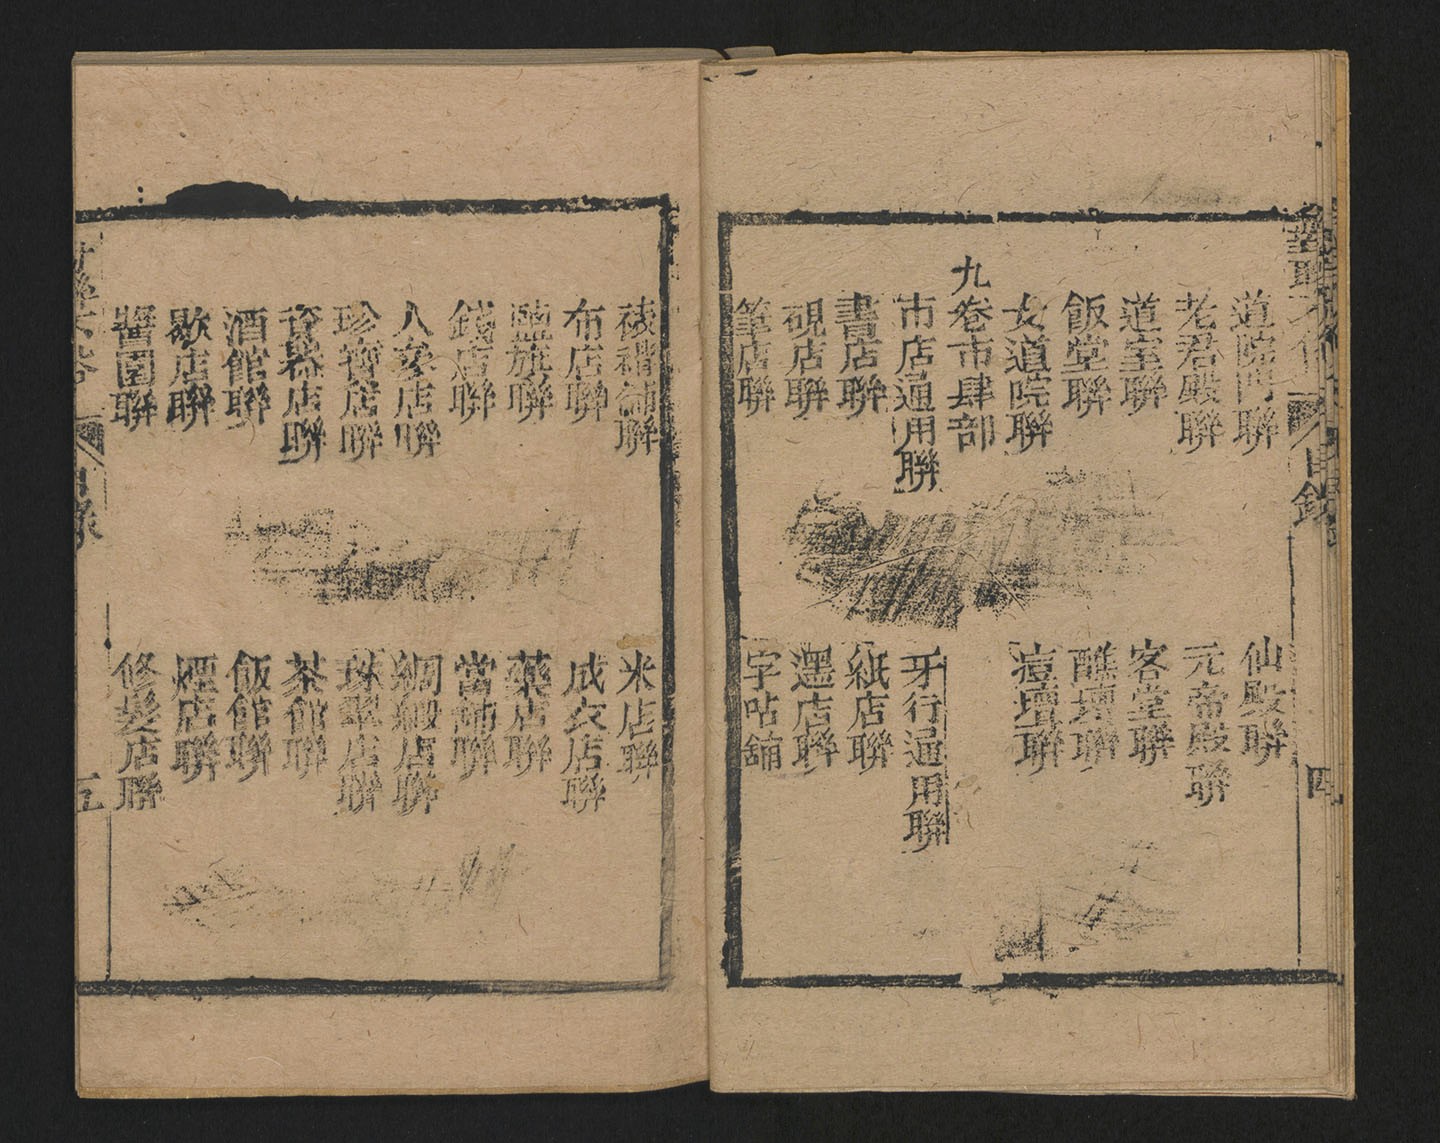 道院門聯
仙殿聯
老君殿聯
元帝殿聯
道室聯
客堂聯
飯堂聯
醮壇聯
女道院聯
痘壇聯
九卷市肆部
市店通用聯
牙行通用聯
書店聯
紙店聯
硯店聯
墨店聯
筆店聯
字帖舖
目錄
四
裱褙舖聯
米店聯
布店聯
成衣店聯
鹽旗聯
藥店聯
錢店聯
當舖聯
人參店聯
綢緞店聯
珍寶店聯
珠翠店聯
瓷器店聯
茶館聯
酒館聯
飯館聯
歇店聯
煙店聯
醬園聯
修髮店聯
目錄
五